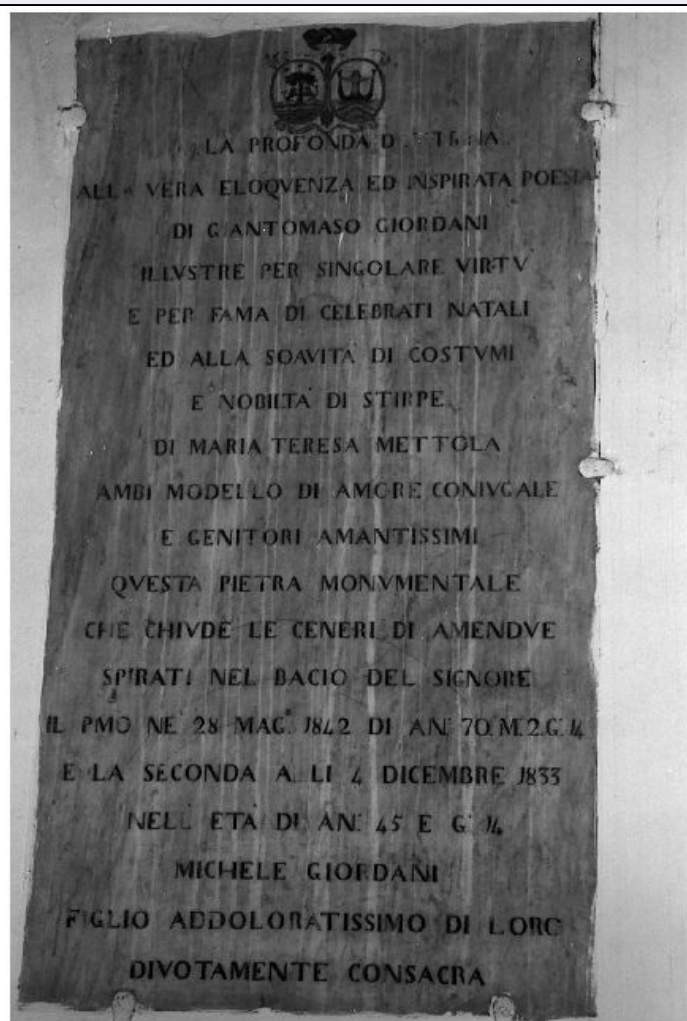 LA PROFONDA
VERA ELOQVENZA ED INSPIRATA POESIA
DI GIANTOMASO GIORDANI
ILLVSTRE PER SINGOLARE VIRTV
E PER FAMA DI CELEBRATI NATALI
ED ALLA SOAVITA DI COSTVMI
E NOBILTA DI STIRPE
DI MARIA TERESA METTOLA
AMBI MODELLO DI AMORE CONIVGALE
E GENITORI AMANTISSIMI
QVESTA PIETRA MONVMENTALE
CHE CHIVDE LE CENERI DI AMENDVE
SPIRATI NEL BACIO DEL SIGNORE
IL PMO NE' 28 MAG.° 1842 DI AN: 70. M.2.G. 14
E LA SECONDA A LI 4 DICEMBRE 1833
NELL' ETA DI AN: 45 E G: 14
MICHELE GIORDANI
FIGLIO ADDOLORATISSIMO DI LORO
DIVOTAMENTE CONSACRA